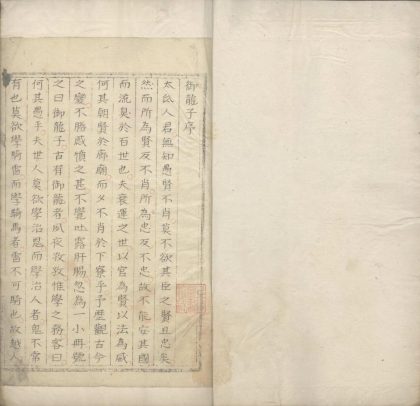 御龍子序
太凡人君無知愚賢不肖莫不欲其臣之賢且忠矣
然而所為賢反不肖所為忠反不忠故不能安其國
而流臭於百世也夫衰運之世以官為賢以法為威
何其朝賢於廊廟而夕不肖於下寮乎予歷觀古今
之變不勝感憤之甚不覺吐露肝腸忽為一小冊號
之曰御龍子古有御龍者夙夜孜孜惟學之務客曰
何其愚乎夫世人莫欲學治鬼而學治人者鬼不常
有也莫欲學騎雷而學騎馬者雷不可騎也故越人